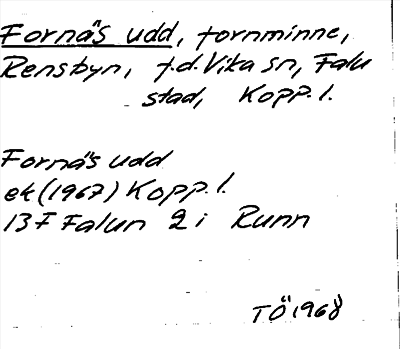 Fornäs udd, fornminne,
Rensbyn, f.d. Vika sn, Falu
stad, Kopp. l.
Fornäs udd
ek (1967) Kopp. l.
13F Falun 2 i Runn
TÖ 1968